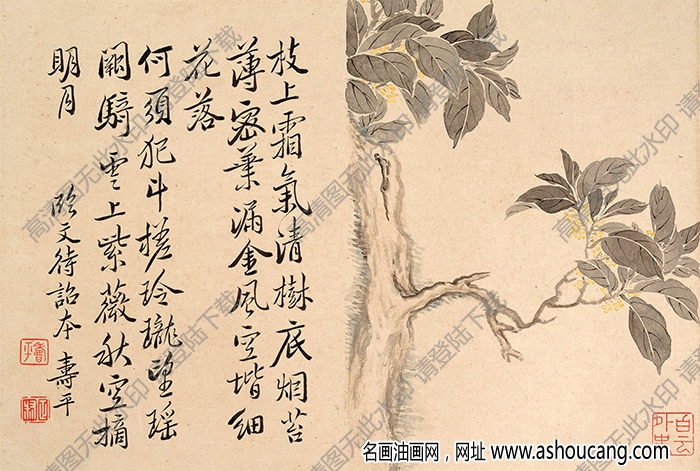 枝上霜氣清樹底烟苔
薄密葉漏金風空堦細
花落
何須犯斗槎玲瓏望瑶
闕騎雲上紫薇秋空摘
明月
臨文待詔本 壽平
白云外史
高清图无此水印 请登陆下载
高清图无此水印 请登陆下载
高清图无此水印 请登陆下载
名画油画网，网址 www.ashoucang.com